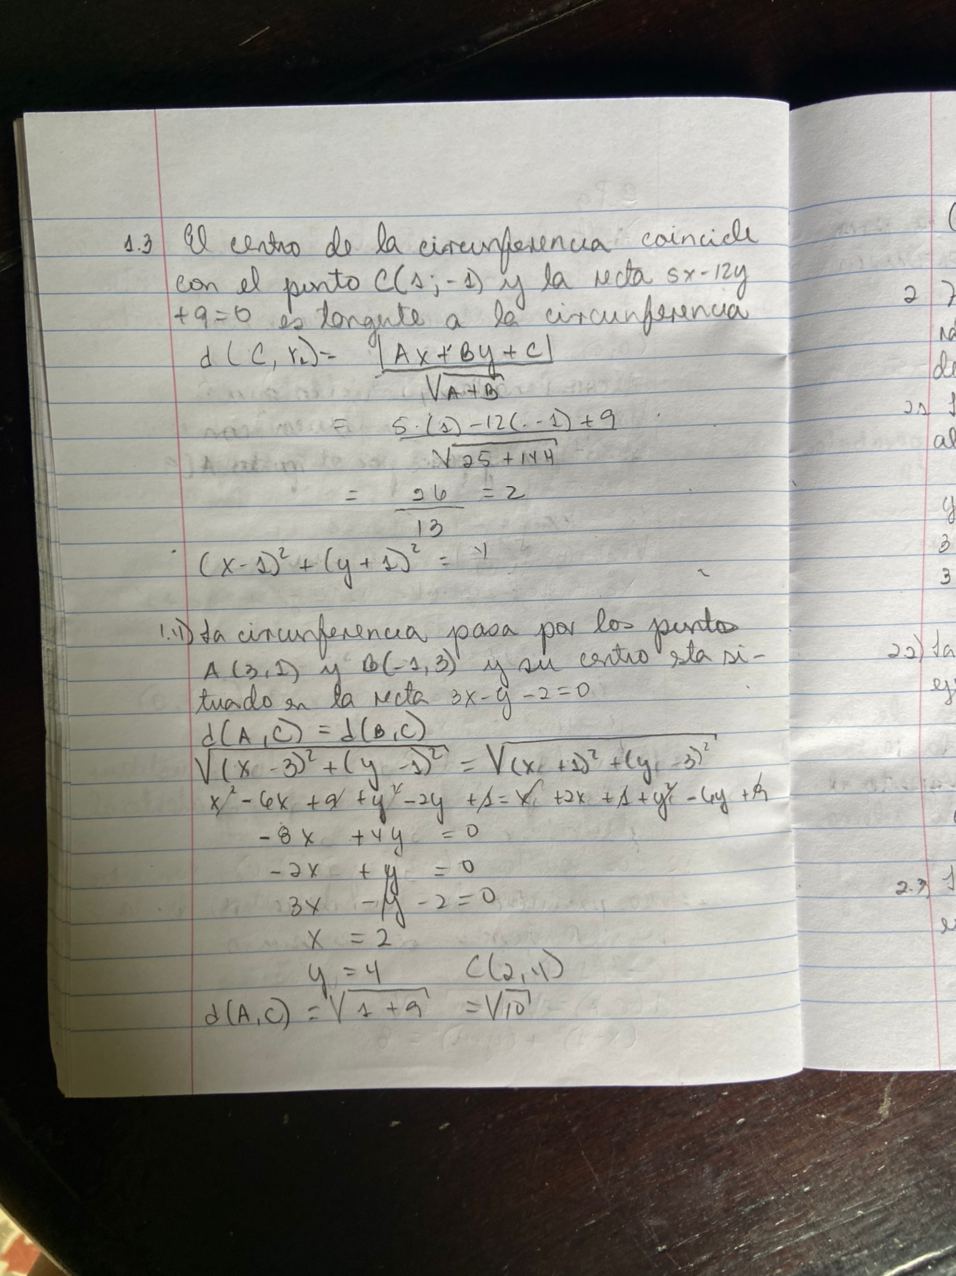 1.3 El centro de la circunferencia coincide
con el punto C(1;-1) y la recta 5x-12y
+9=0 es tangente a la circunferencia
d(C,r₂)= |Ax+By+C|
√A+B
= 5·(1)-12(-1)+9
√25+144
= 26 = 2
13
(x-1)²+(y+1)² = 4
1.4) La circunferencia pasa por los puntos
A(3,1) y B(-1,3) y su centro esta si-
tuado en la recta 3x-y-2=0
d(A,C) = d(B,C)
√(x-3)²+(y-1)² = √(x+1)²+(y-3)²
x²-6x+9+y²-2y+1=x²+2x+1+y²-6y+9
-8x +4y =0
-2x +y =0
3x -y -2=0
x = 2
y = 4 C(2,4)
d(A,C) = √1+9 = √10
2
21
al
y
3
3
22) La
ej
2.3)